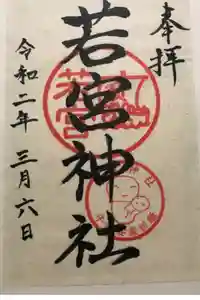 奉拝
若宮神社
令和二年 三月六日